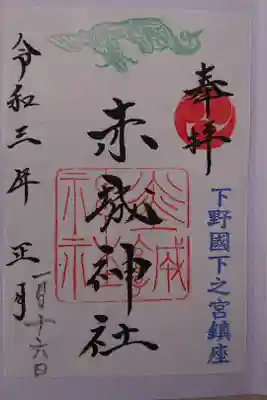 奉拝
下野國下之宮鎮座
赤城神社
令和三年 正月
一月十六日